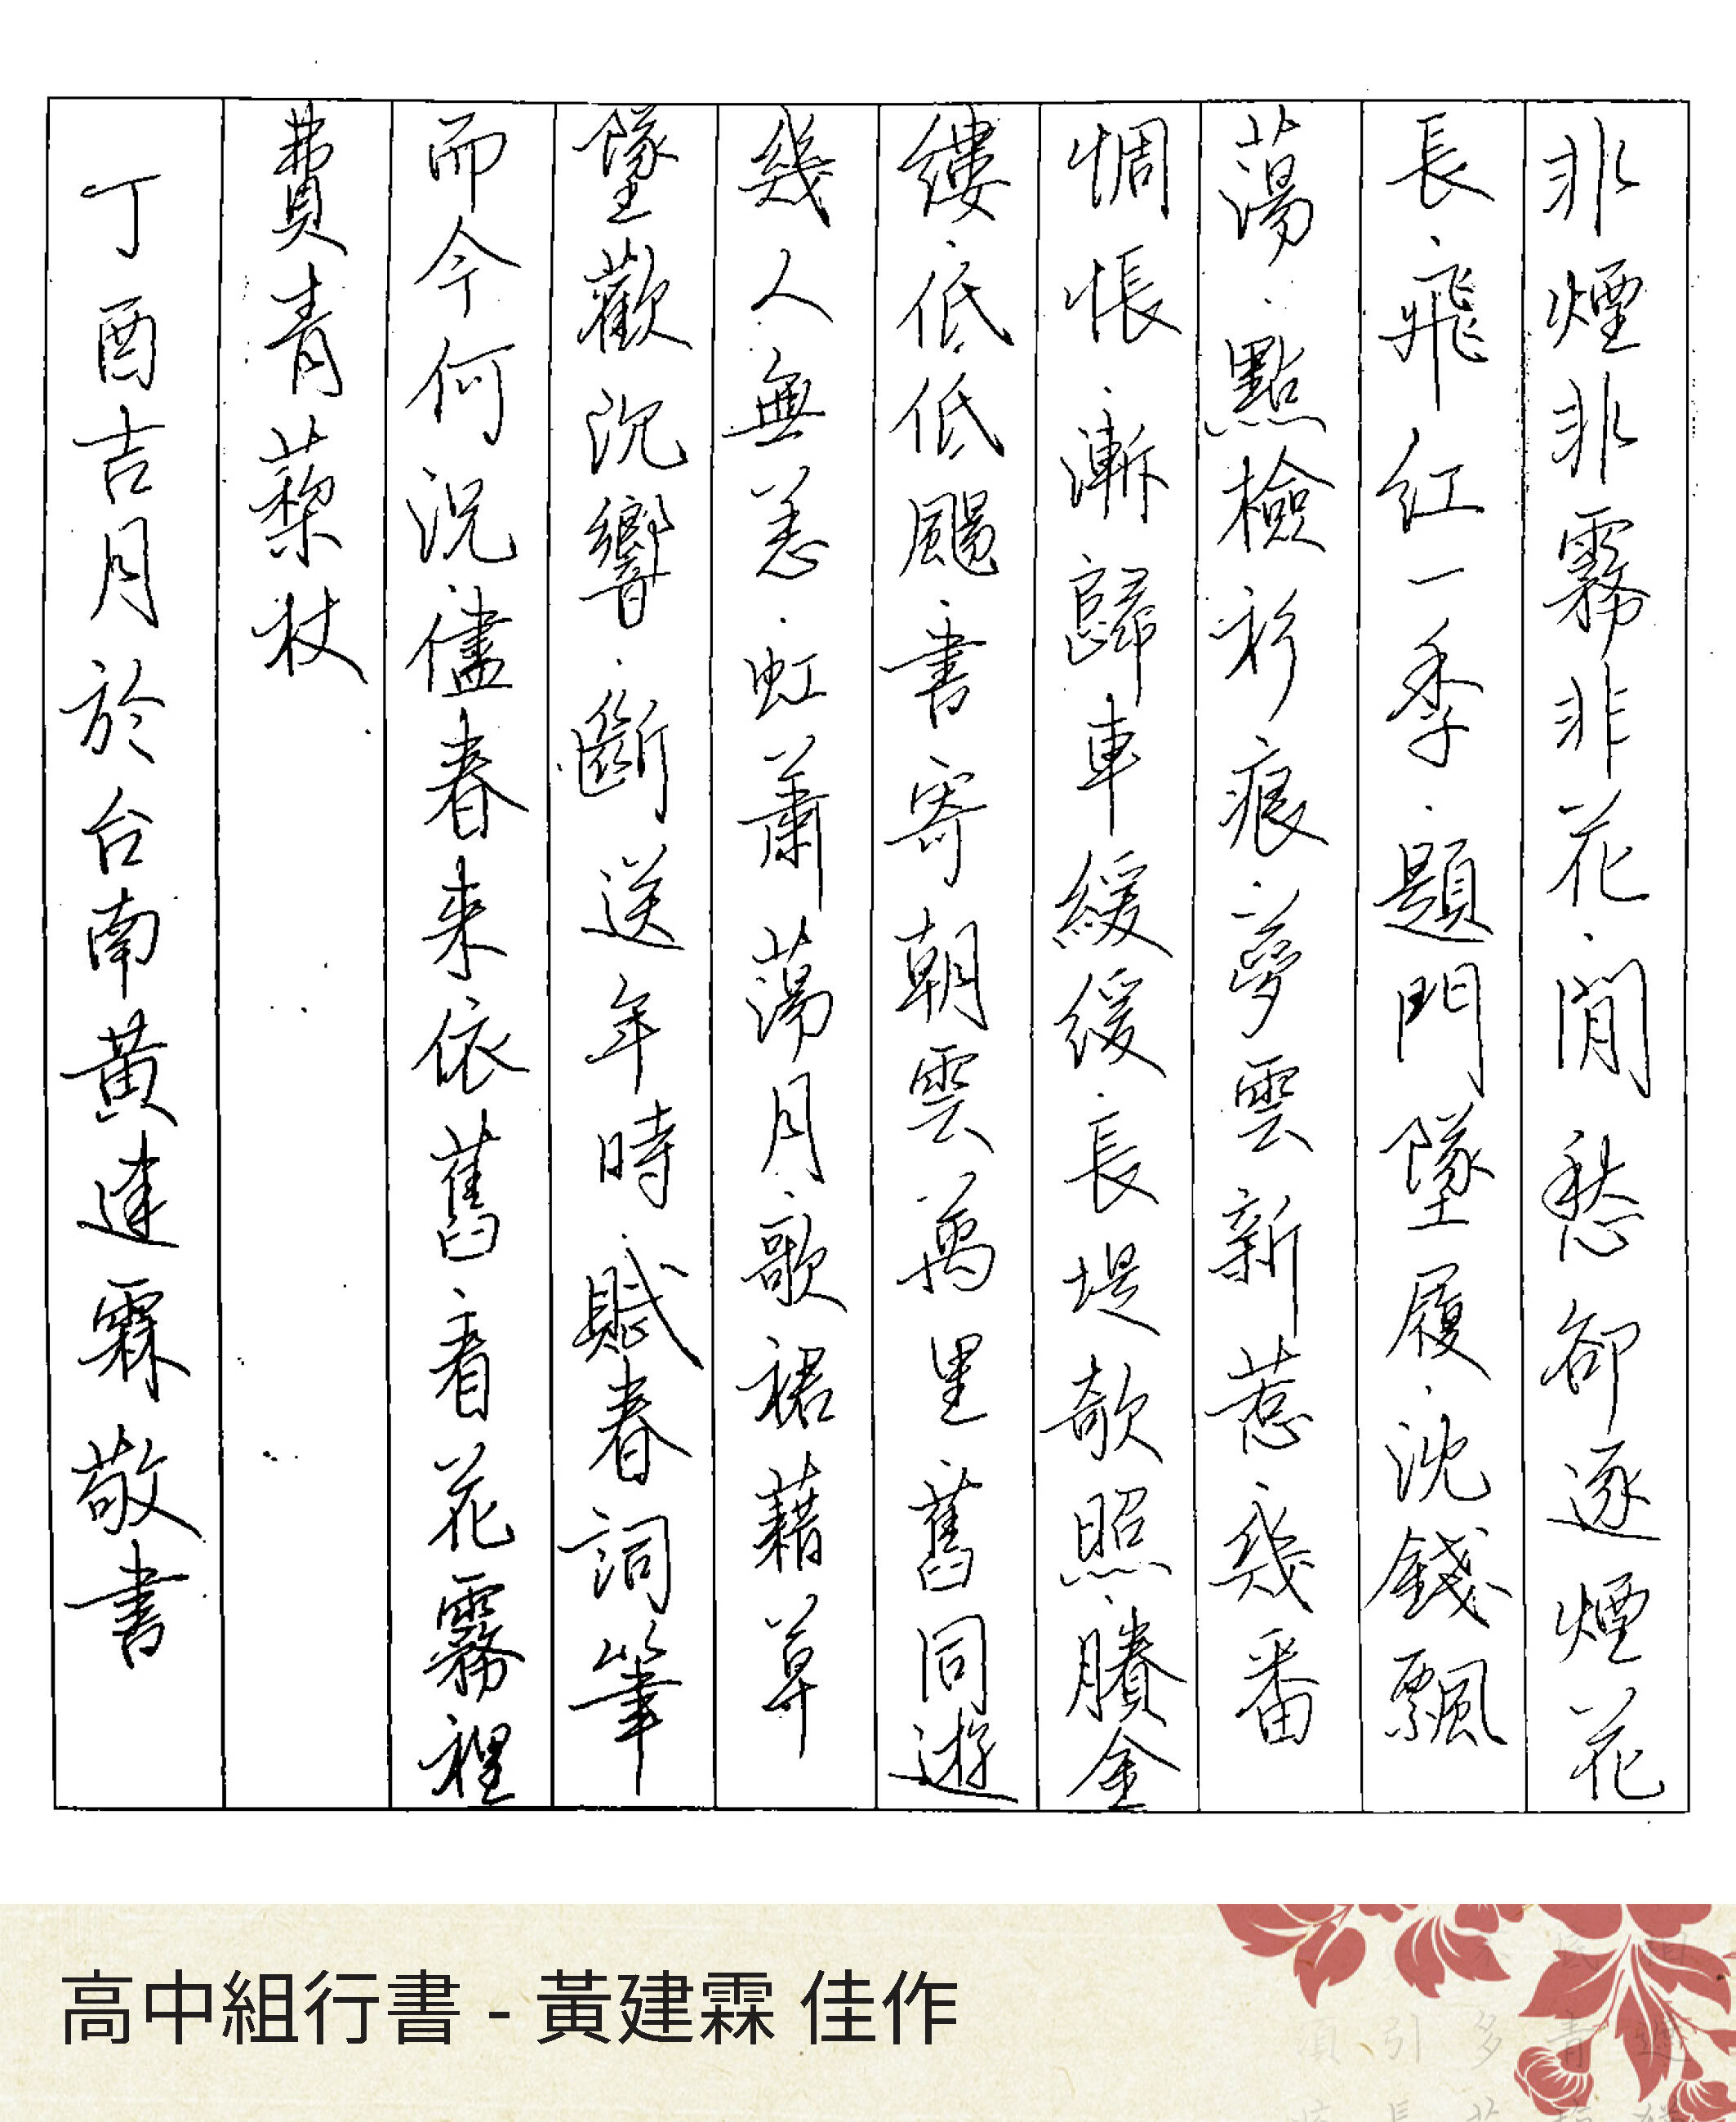 非煙非霧非花、閒愁卻逐煙花
長、飛紅一季、題門墜履、沈錢飄
蕩、點檢衫痕、夢雲新惹、幾番
惆悵、漸歸車緩緩、長堤欹照、賸金
縷、低低颺、書寄朝雲萬里、舊同遊
幾人無恙、虹蕭蕩月、歌裙藉草
墜歡沉響、斷送年時、賦春詞筆
而今何況、儘春來依舊、看花霧裡
費青藜杖
丁酉吉月於台南黃建霖敬書
高中組行書 - 黃建霖 佳作